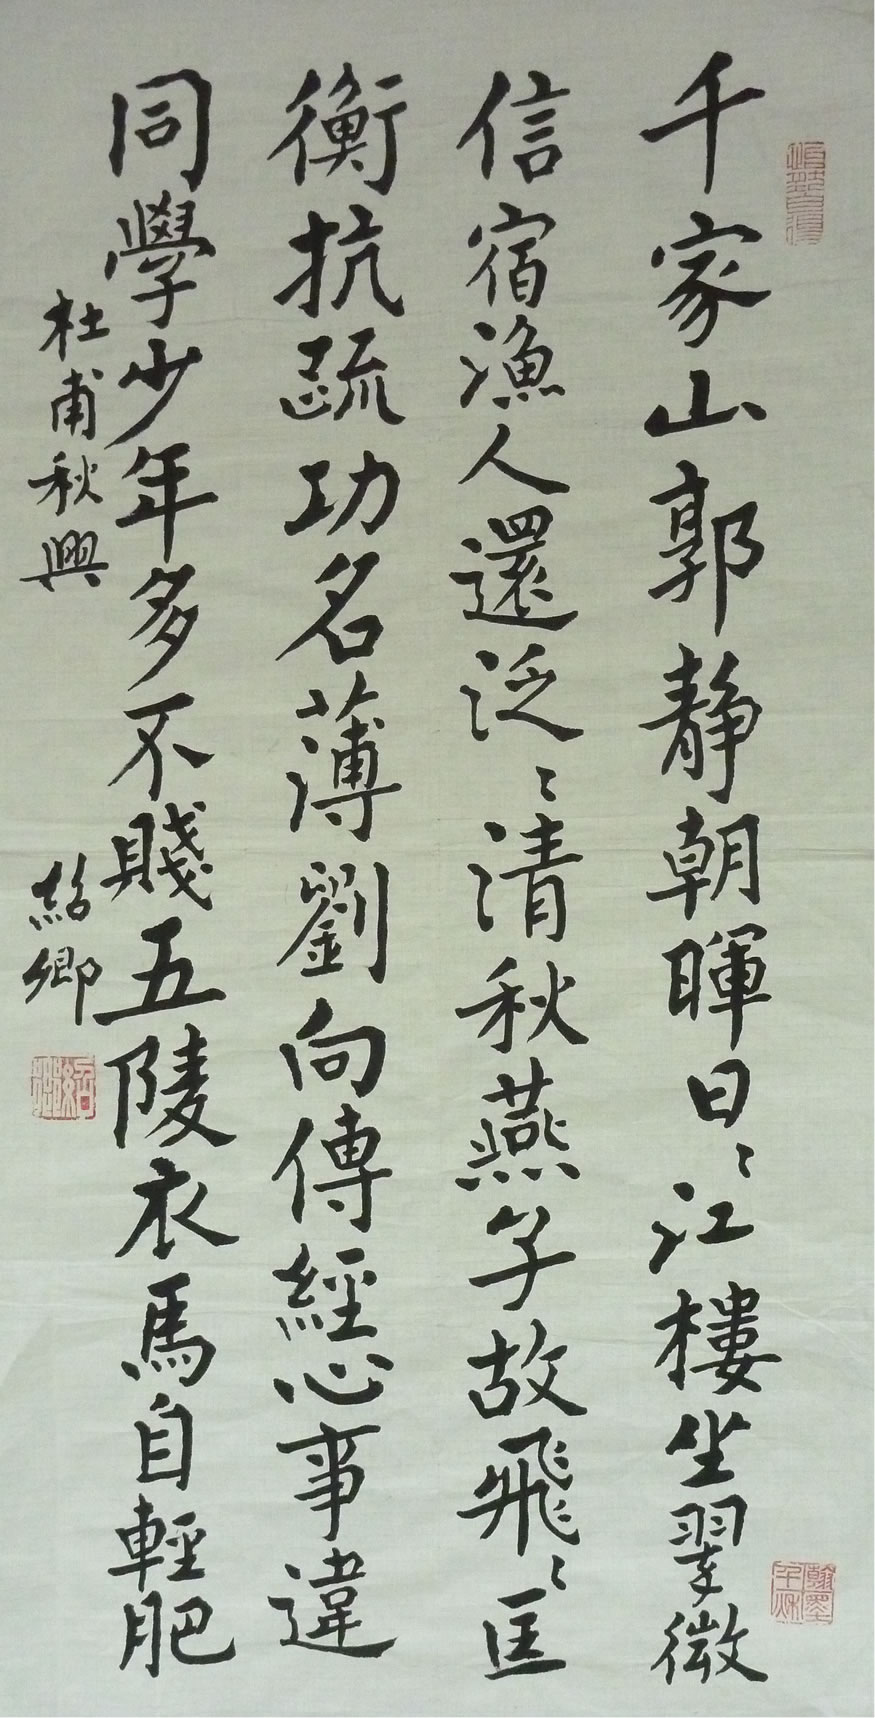 千家山郭靜朝暉日〻江樓坐翠微
信宿漁人還泛〻清秋燕子故飛〻匡
衡抗疏功名薄劉向傳經心事違
同學少年多不賤五陵衣馬自輕肥
杜甫秋興
紹卿
翰墨千秋